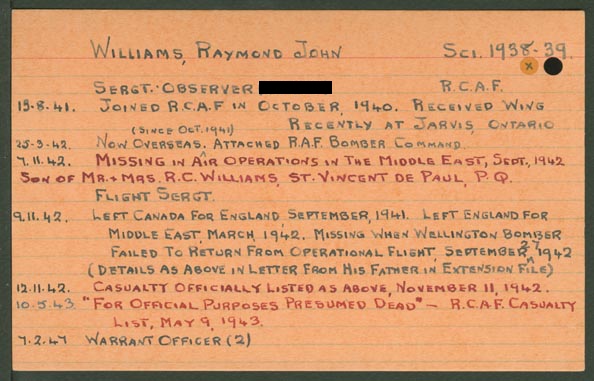 WILLIAMS, RAYMOND JOHN SCI. 1938-39.
x
SERGT. OBSERVER R.C.A.F.
15-8-41. JOINED R.C.A.F IN OCTOBER, 1940. RECEIVED WING
(SINCE OCT. 1941) RECENTLY AT JARVIS, ONTARIO
25-3-42. NOW OVERSEAS. ATTACHED R.A.F. BOMBER COMMAND.
7.11.42. MISSING IN AIR OPERATIONS IN THE MIDDLE EAST, SEPT., 1942
SON OF MR. & MRS. R.C. WILLIAMS, ST. VINCENT DE PAUL, P.Q.
FLIGHT SERGT.
9.11.42. LEFT CANADA FOR ENGLAND, SEPTEMBER, 1941. LEFT ENGLAND FOR
MIDDLE EAST, MARCH, 1942. MISSING WHEN WELLINGTON BOMBER
FAILED TO RETURN FROM OPERATIONAL FLIGHT, SEPTEMBER 27 1942
(DETAILS AS ABOVE IN LETTER FROM HIS FATHER IN EXTENSION FILE)
12.11.42. CASUALTY OFFICIALLY LISTED AS ABOVE, NOVEMBER 11, 1942.
10.5.43 "FOR OFFICIAL PURPOSES PRESUMED DEAD" — R.C.A.F. CASUALTY
LIST, MAY 9, 1943.
7.2.47 WARRANT OFFICER (2)